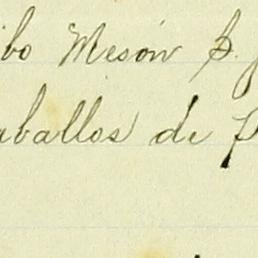 ibo Mesón S.
aballos de